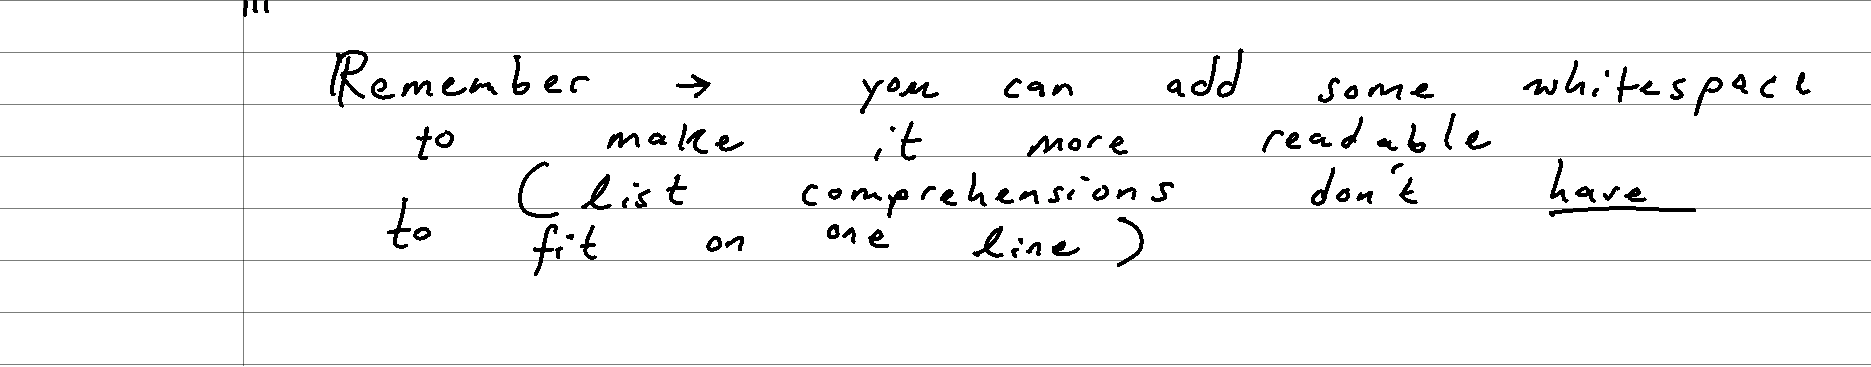 Remember → you can add some whitespace
to make it more readable
(list comprehensions don't have
to fit on one line)